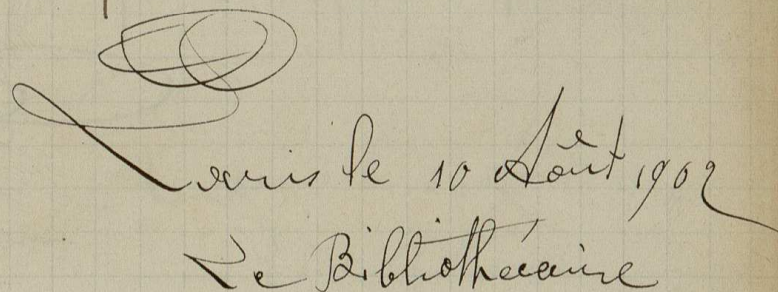 Paris le 10 Août 1902
Le Bibliothécaire